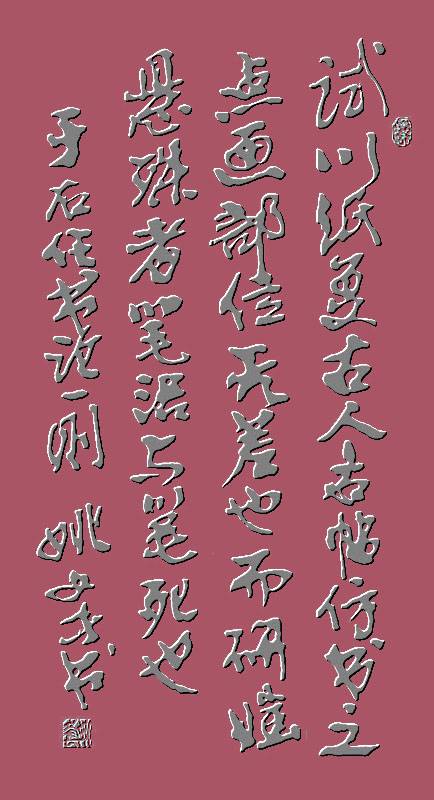 试以纸复古人名帖仿书之
点画部位无差也而研媸
悬殊者笔活与笔死也
于右任书论一则 姚书